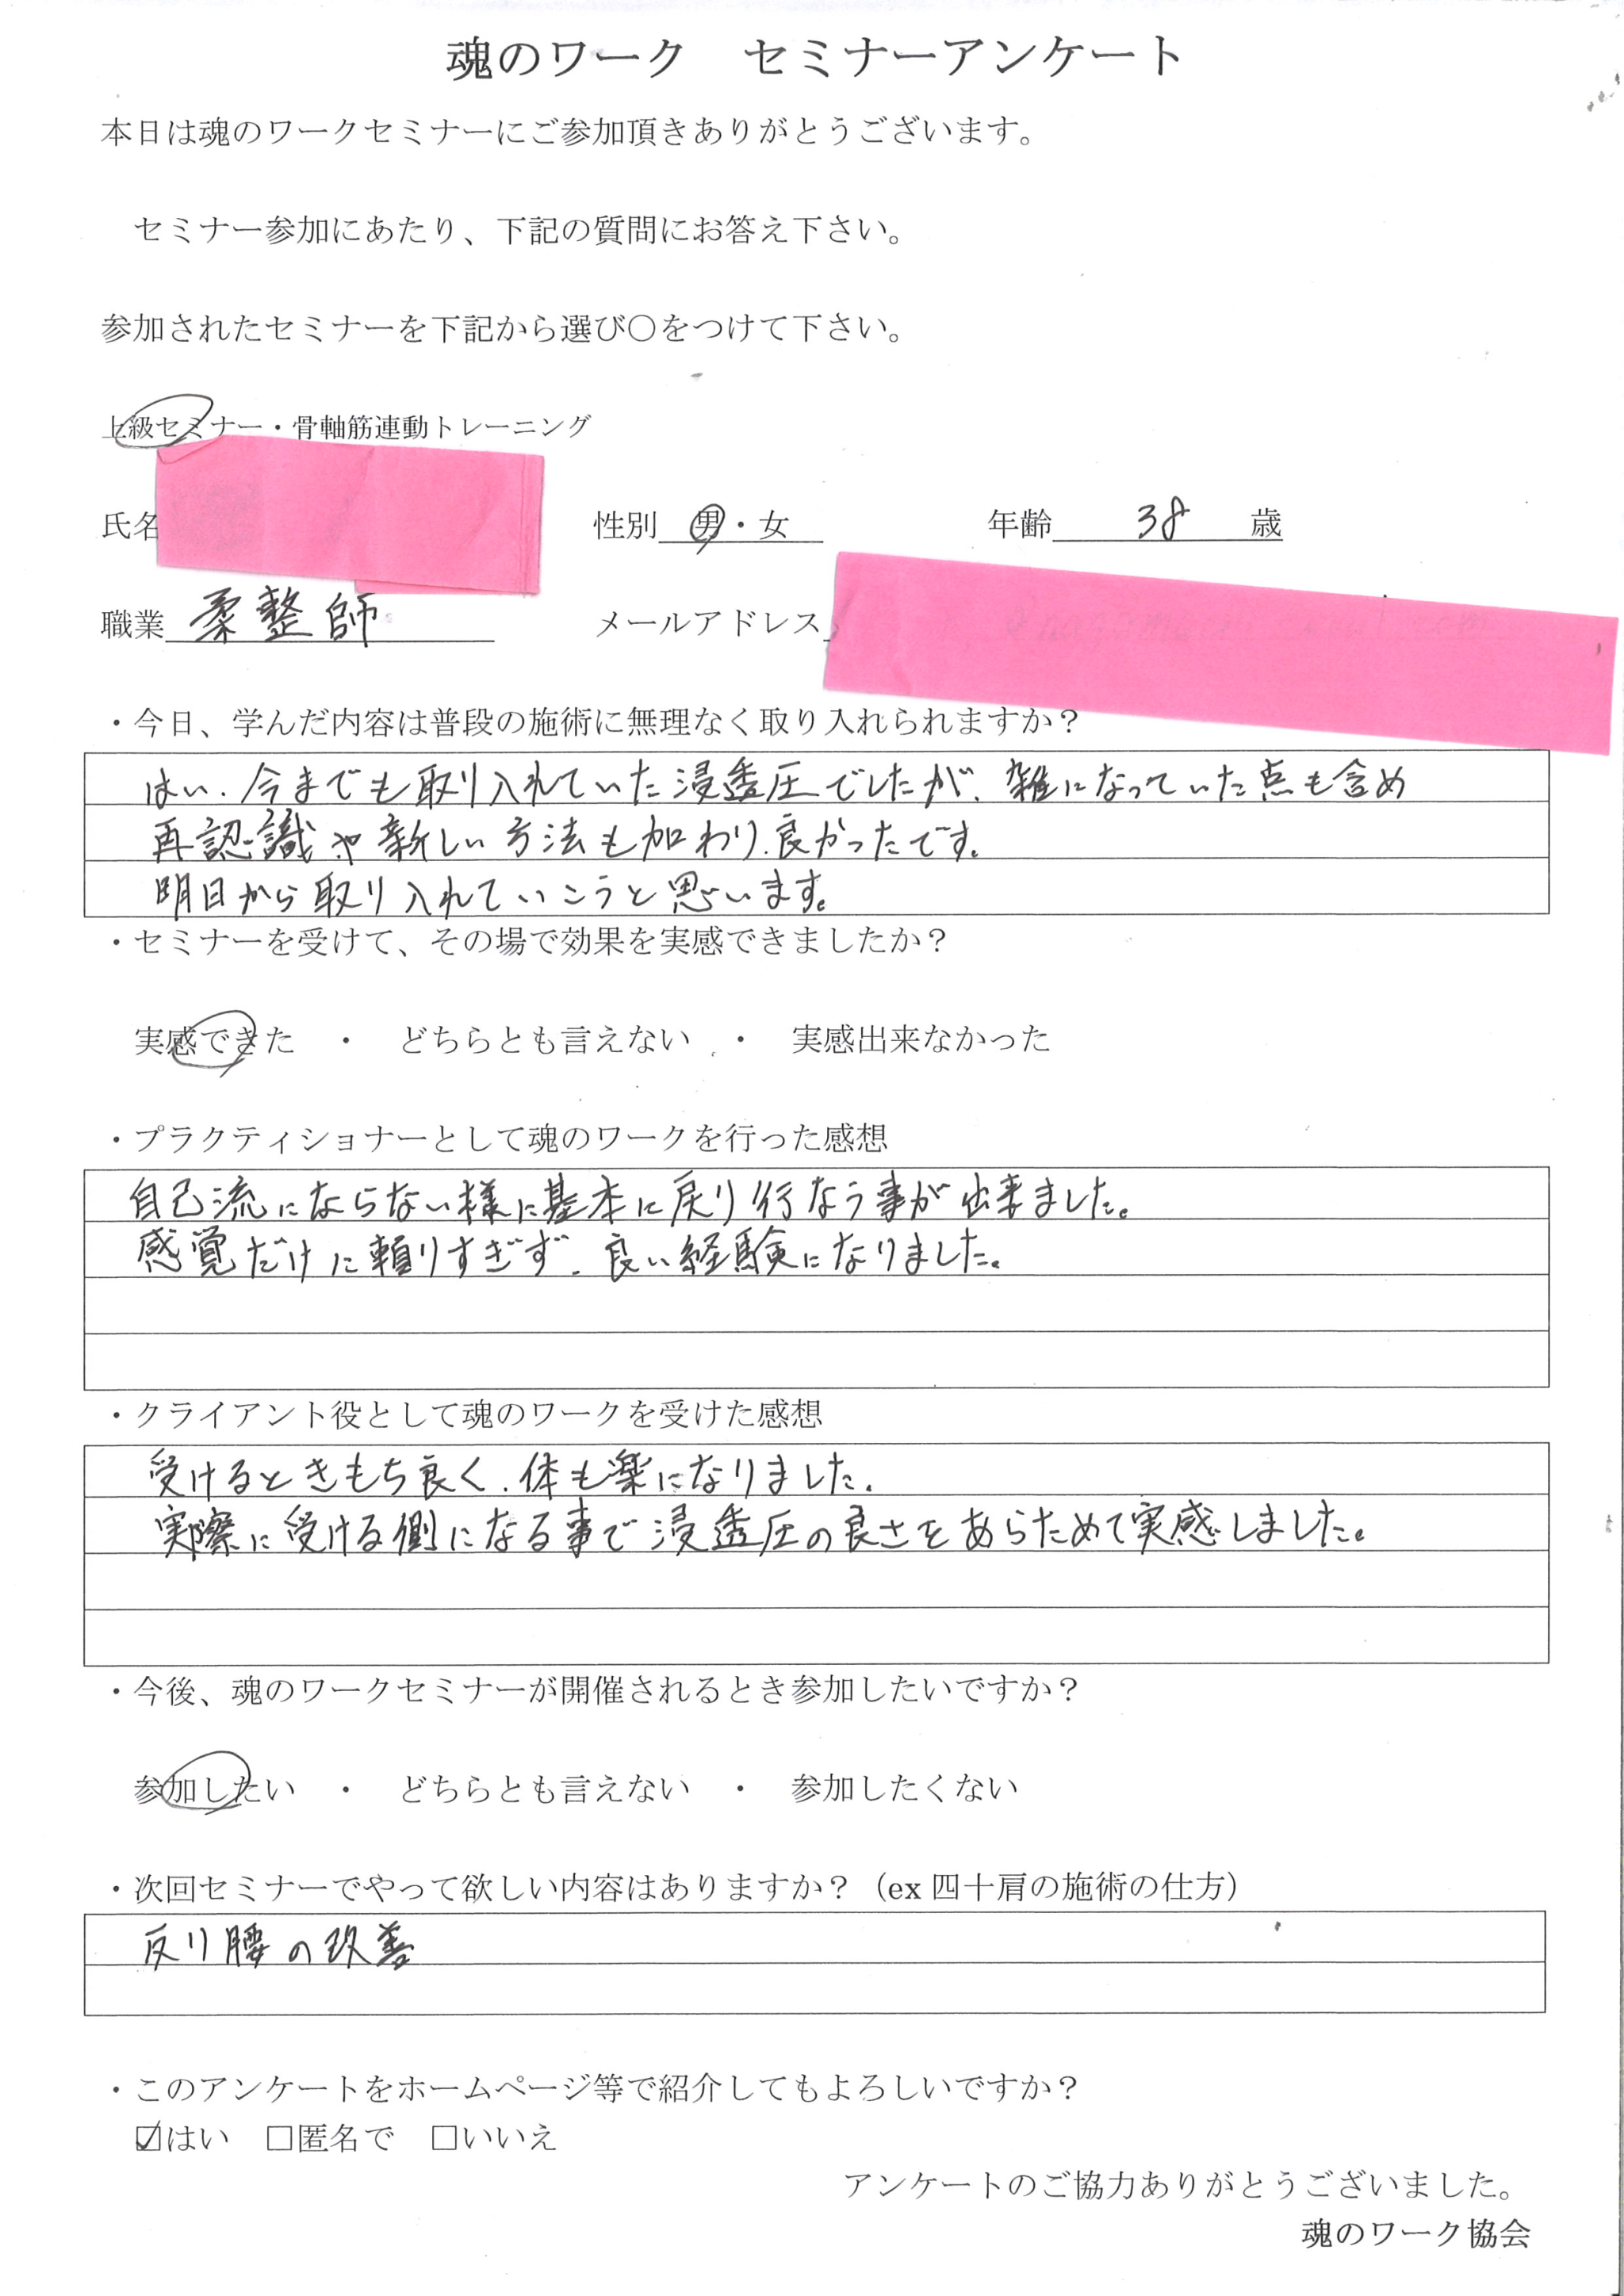 魂のワーク　セミナーアンケート
本日は魂のワークセミナーにご参加頂きありがとうございます。
セミナー参加にあたり、下記の質問にお答え下さい。
参加されたセミナーを下記から選び○をつけて下さい。
上級セミナー・骨軸筋連動トレーニング
氏名　性別　男・女　年齢　38　歳
職業　柔整師　メールアドレス
・今日、学んだ内容は普段の施術に無理なく取り入れられますか？
はい、今までも取り入れていた浸透圧でしたが、雑になっていた点も含め
再認識や新しい方法も加わり、良かったです。
明日から取り入れていこうと思います。
・セミナーを受けて、その場で効果を実感できましたか？
実感できた　・　どちらとも言えない　・　実感出来なかった
・プラクティショナーとして魂のワークを行った感想
自己流にならない様に基本に戻り行なう事が出来ました。
感覚だけに頼りすぎず、良い経験になりました。
・クライアント役として魂のワークを受けた感想
受けるときもち良く、体も楽になりました。
実際に受ける側になる事で浸透圧の良さをあらためて実感しました。
・今後、魂のワークセミナーが開催されるとき参加したいですか？
参加したい　・　どちらとも言えない　・　参加したくない
・次回セミナーでやって欲しい内容はありますか？（ex 四十肩の施術の仕方）
反り腰の改善
・このアンケートをホームページ等で紹介してもよろしいですか？
☑はい　□匿名で　□いいえ
アンケートのご協力ありがとうございました。
魂のワーク協会